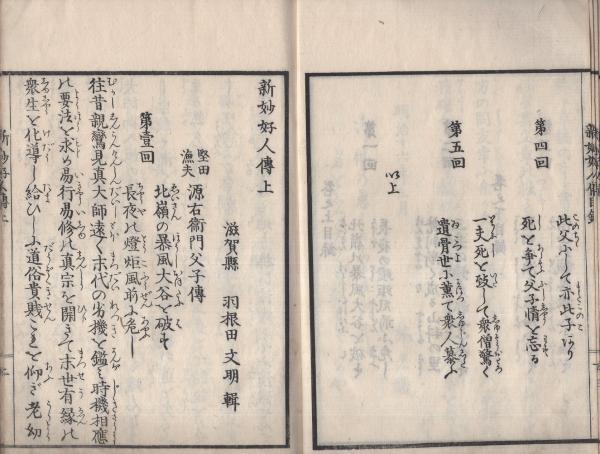 新妙好人傳目録
第四回
此父ふして亦此子あり
死を棄て父子情を忘る
第五回
一夫死を致して衆僧驚く
遺骨世ふ薫て衆人慕ふ
以上
新妙好人傳上
滋賀縣 羽根田文明輯
堅田漁夫 源右衞門父子傳
第壹回
北嶺の暴風大谷を破る
長夜の燈炬風前ふ危し
往昔親鸞見真大師遠く末代の劣機を鑑み時機相應
の要法を求め易行易修の真宗を開きて末世有縁の
衆生を化導し給ひしふ道俗貴賤これを仰ぎ老幼
新妙好人傳上